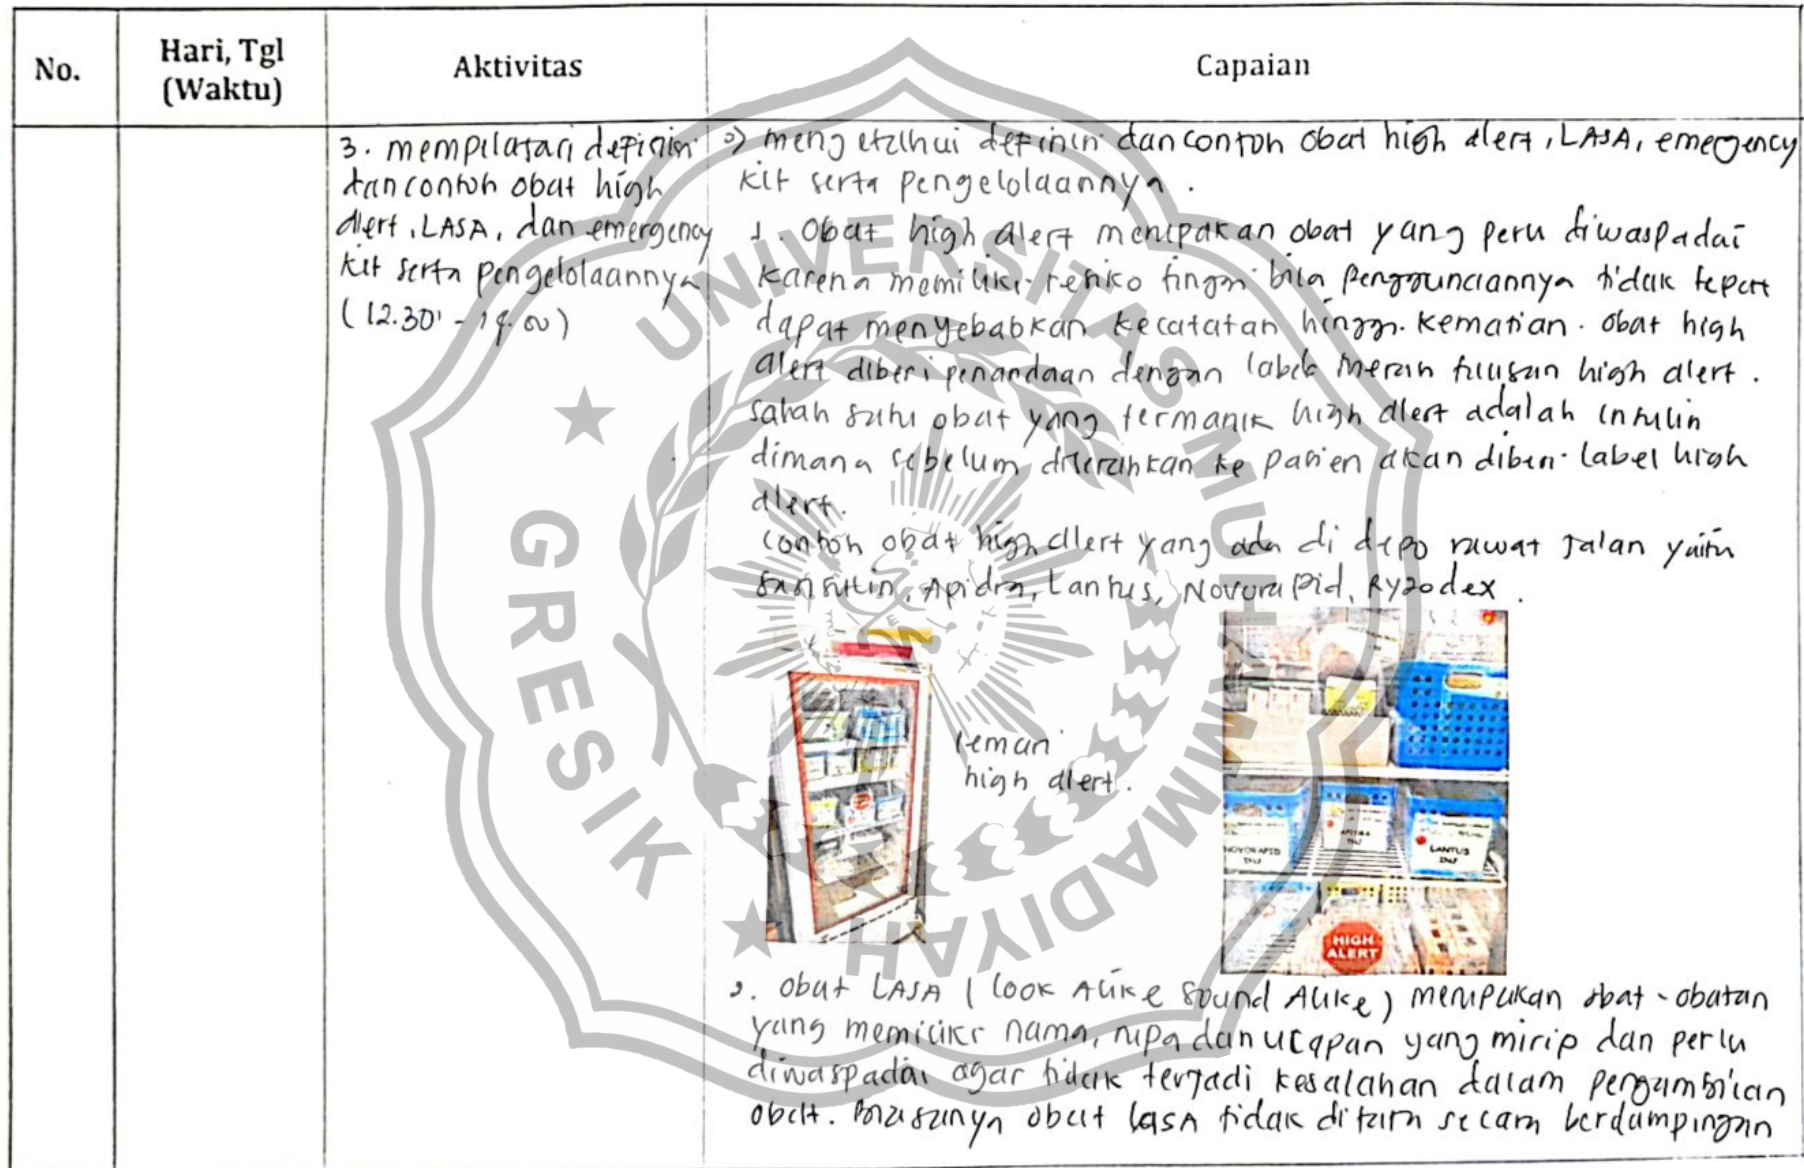 No.
Hari, Tgl
(Waktu)
Aktivitas
Capaian
3. mempelajari definisi
dan contoh obat high
alert, LASA, dan emergency
kit serta pengelolaannya
(12.30 - 19.00)
mengetahui definisi dan contoh obat high alert, LASA, emergency
kit serta pengelolaannya.
1. Obat high alert merupakan obat yang peru diwaspadai
karena memiliki resiko tinggi bila penggunaannya tidak tepat
dapat menyebabkan kecatatan hingga kematian. obat high
alert diberi penandaan dengan label merah tulisan high alert.
salah satu obat yang termasuk high alert adalah insulin
dimana sebelum diserahkan ke pasien akan diberi label high
alert.
contoh obat high alert yang ada di depo rawat jalan yaitu
Apidra, Lantus, Novorapid, Ryzodex.
lemari
high alert.
NOVORAPID
INJ
APIDRA
INJ
LANTUS
INJ
HIGH
ALERT
2. obat LASA (Look Alike Sound Alike) merupakan obat-obatan
yang memiliki nama, rupa dan ucapan yang mirip dan perlu
diwaspadai agar tidak terjadi kesalahan dalam pengambilan
obat. Biasanya obat LASA tidak ditaruh secara berdampingan
UNIVERSITAS MUHAMMADIYAH
GRESIK